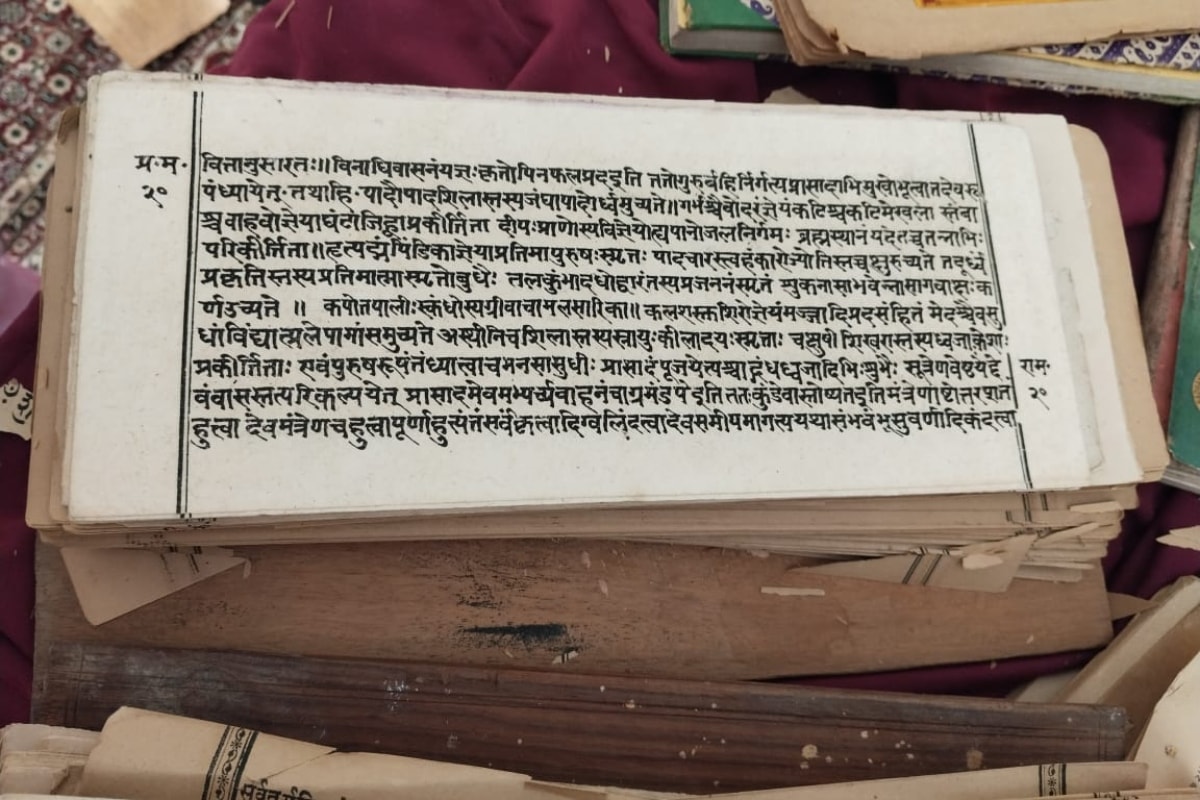 प्र॰म॰ वित्तानुसारतः॥विनाधिवासनंयज्ञःकृतोपिनफलप्रदइति ततोगुरुर्बहिर्निर्गत्यप्रासादाभिमुखोभूत्वातदेवरू
२० पंध्यायेत् तद्यथाहि पादौपादशिलास्तस्यजंघापादोर्ध्वमुच्यते॥गर्भश्चैवोदरंज्ञेयंकटिश्चकटिमेखला स्तंभा
श्चबाहवोज्ञेयाघंटाजिह्वाप्रकीर्त्तिता दीपःप्राणोस्यविज्ञेयोह्यपानोजलनिर्गमः ब्रह्मस्थानंयदेतच्चतन्नाभिः
परिकीर्त्तिता॥हृत्पद्मंपिंडिकाज्ञेयाप्रतिमापुरुषःस्मृतः पादचारस्त्वहंकारोज्योतिस्तच्चक्षुरुच्यते तदूर्ध्वं
प्रकृतिस्तस्यप्रतिमात्मास्मृतोबुधैः तलकुंभादधोद्वारंतस्यप्रजननंस्मृतं शुकनासाभवेन्नासागवाक्षःक
र्णउच्यते ॥ कपोतपालीःस्कंधोस्यग्रीवाचामलसारिका॥कलशस्तुशिरोज्ञेयंमज्जादिप्रदसंहितं मेदश्चैवसु
धांविंद्यात्प्रलेपोमांसमुच्यते अस्थीनिचशिलास्तस्यस्नायुःकीलादयःस्मृताः चक्षुषीशिखरास्तस्यध्वजाकेशाः
प्रकीर्त्तिताः एवंपुरुषरूपंतंध्यात्वाचमनसासुधीः प्रासादंपूजयेत्पश्चाद्गंधध्वजादिभिःशुभैः सूत्रेणवेष्टयेद्दे राम॰
वंवासस्तत्परिकल्पयेत् प्रासादमेवमभ्यर्च्यवाहनंचाग्रमंडपेइति ततःकुंडेवास्तोष्पतइतिमंत्रेणाष्टोत्तरशतं २०
हुत्वा देवमंत्रेणचहुत्वापूर्णाहुत्यंतंसर्वंकृत्वादिग्बलिंदत्वादेवसमीपमागत्ययथासंभवंभूसुवर्णादिकंदत्वा